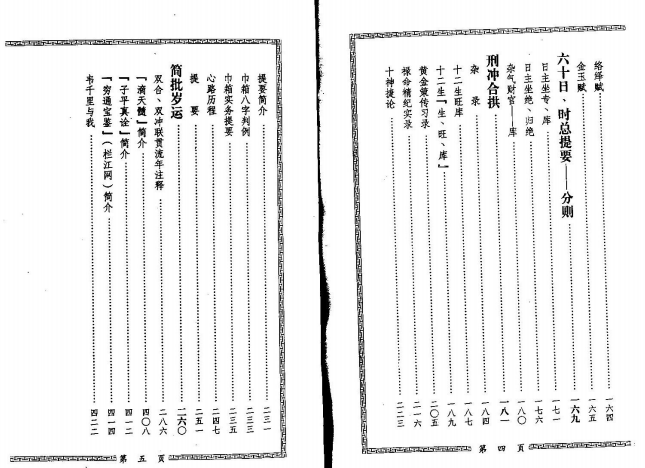 络绎赋 一六四
金玉赋 一六五
六十日、时总提要——分则 一六九
日主坐专、库 一七一
日主坐绝、归绝 一七六
杂气财官——库 一八〇
刑冲合拱 一八一
杂录 一八四
十二生旺库 一八七
十二生『生、旺、库』 一八九
黄金策传习录 二〇五
禄命精纪实录 二一六
十神捷论 二二三
第四页
提要简介 二三一
巾箱八字判例 二三三
巾箱实务提要 二三五
心路历程 二四七
提要 二五一
简批岁运 二六〇
双合、双冲联贯流年注释 二八六
『滴天髓』简介 四〇八
『子平真诠』简介 四一二
『穷通宝鉴』(栏江网)简介 四一四
韦千里与我 四二二
第五页